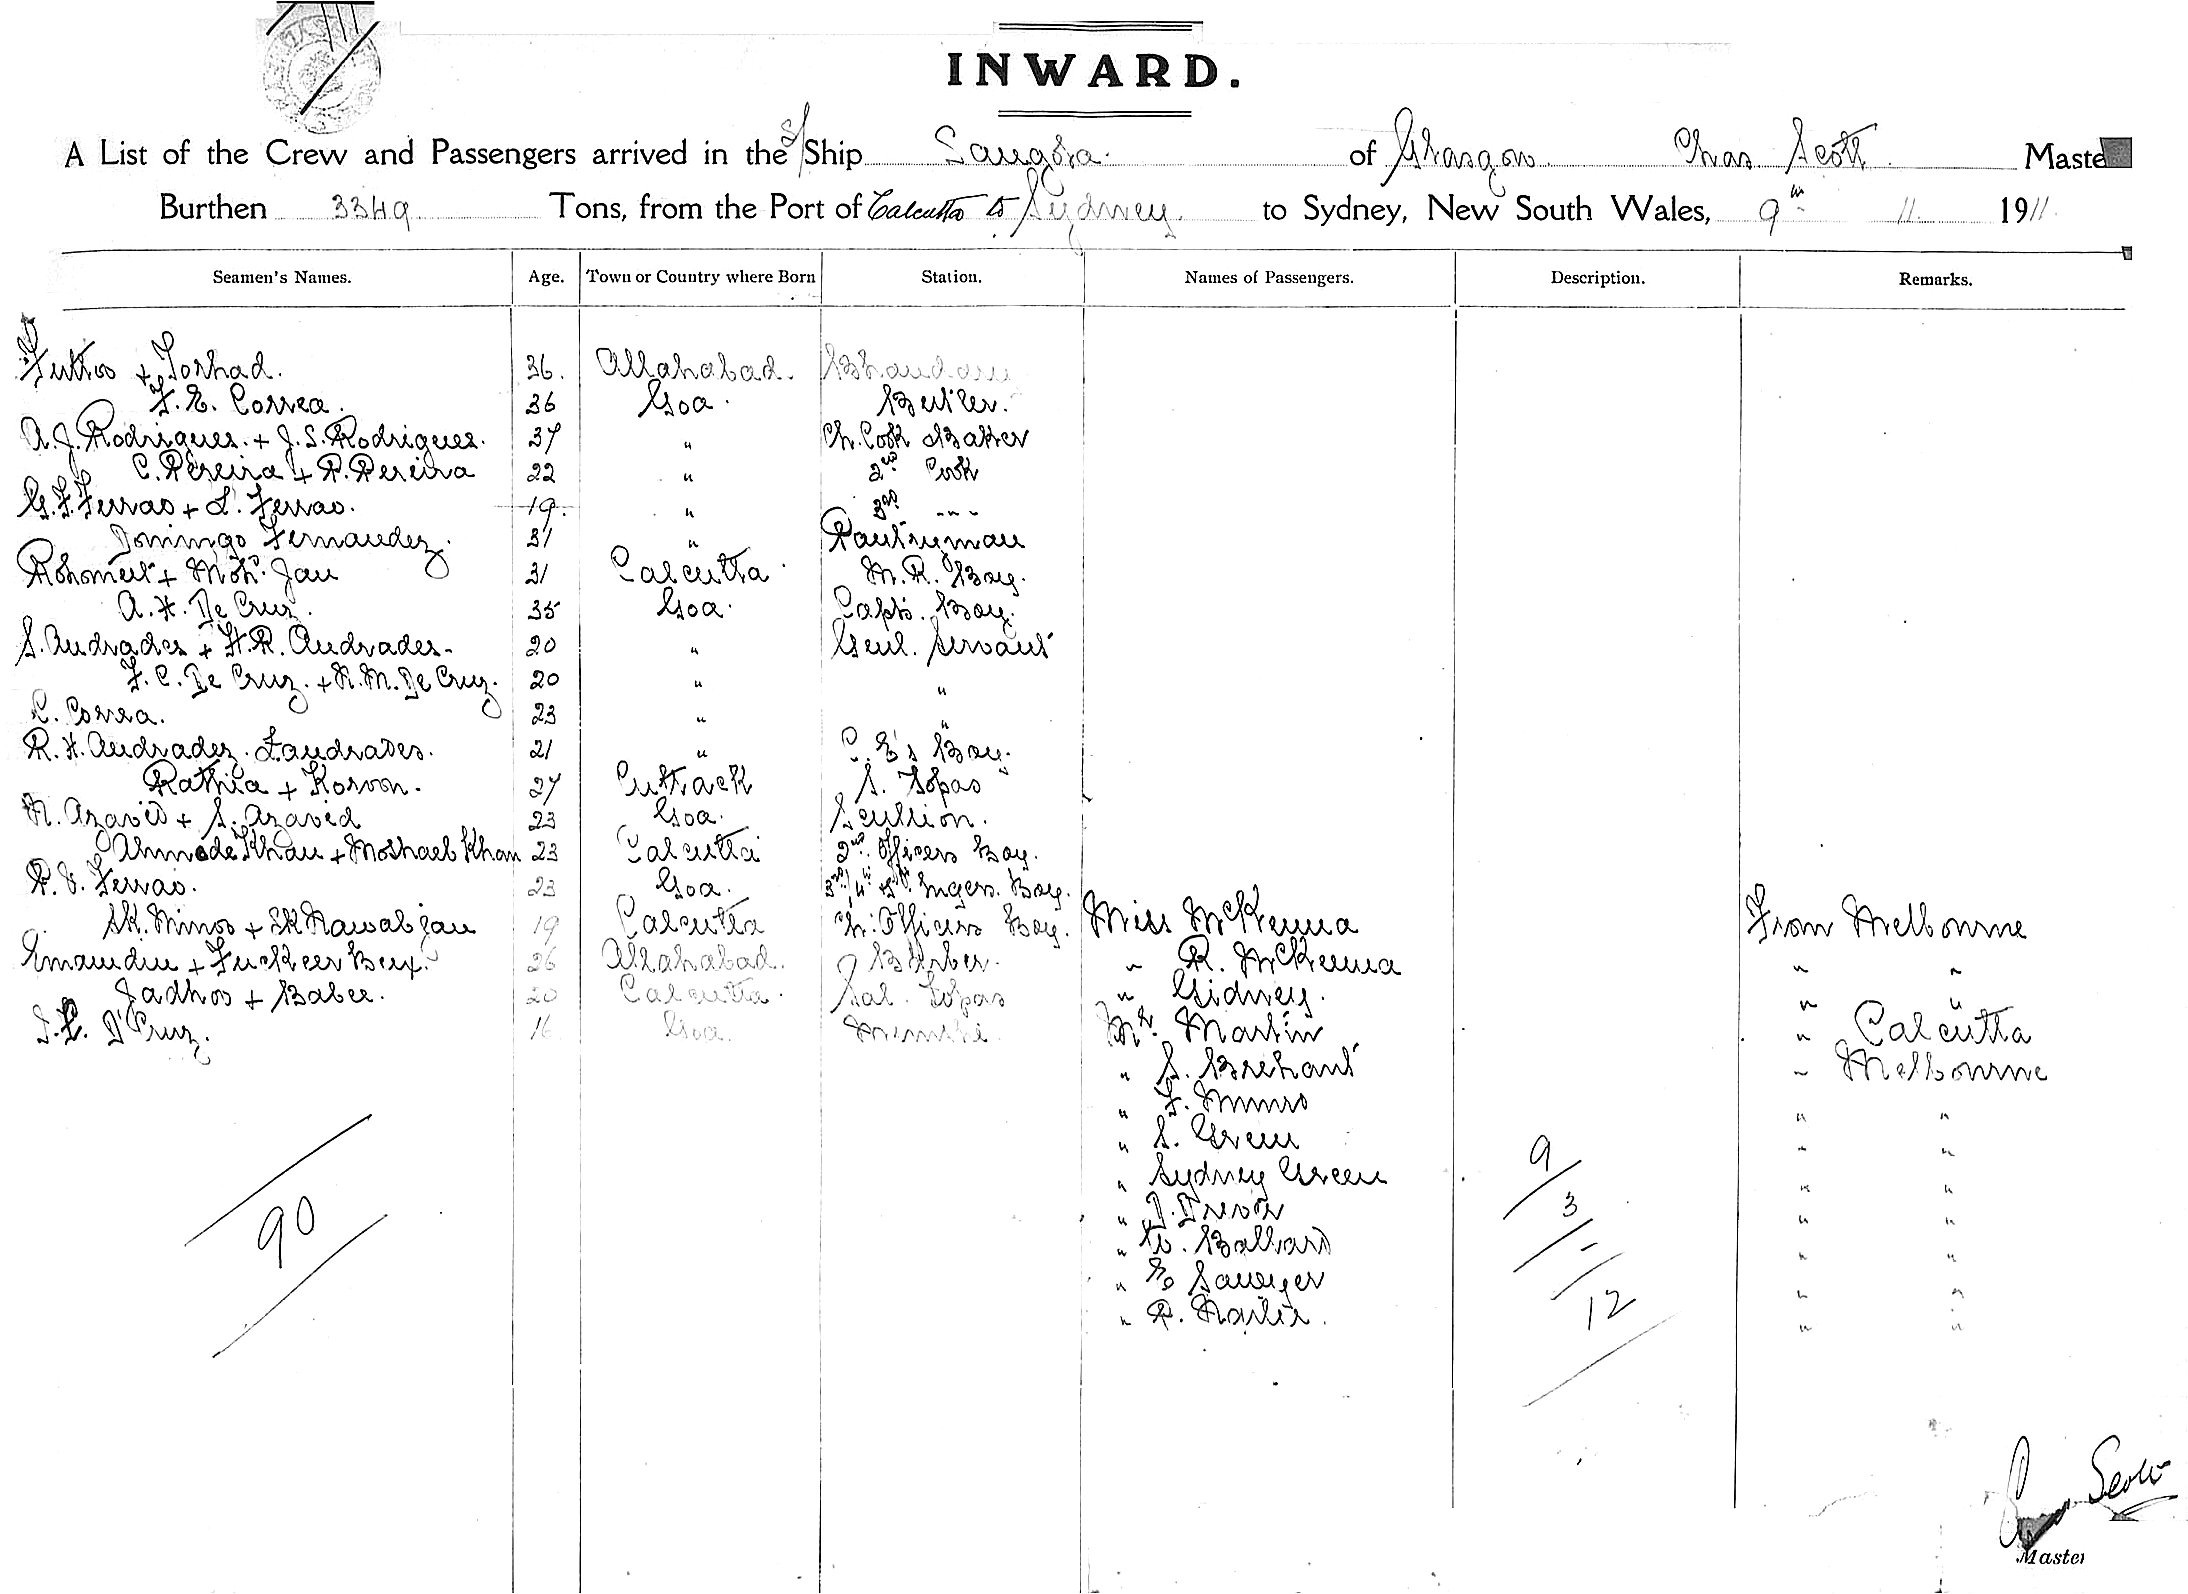 INWARD.
A List of the Crew and Passengers arrived in the S/Ship Sangola. of Glasgow. Chas Scott Maste
Burthen 3349 Tons, from the Port of Calcutta to Sydney. to Sydney, New South Wales, 9th 11 1911.
Seamen's Names. Age. Town or Country where Born Station. Names of Passengers. Description. Remarks.
Futtoo + Torhad. 36. Allahabad. Bhandary
F. E. Correa. 36 Goa. Butler.
A. J. Rodrigues. + J. S. Rodrigues. 37 " Ch. Cook Baker
C. Pereira + P. Pereira 22 " 2nd Cook
G. F. Ferrao + L. Ferrao. 19. " 3rd " "
Domingo Fernandez. 31 " Pantryman
Rohomut + Moh. Jan 31 Calcutta M. R. Boy.
A. X. De Cruz. 35 Goa. Capts. Boy.
S. Andrades + H. R. Andrades. 20 " Genl. Servant
F. C. De Cruz. + R. M. De Cruz. 20 " "
C. Correa. 23 " "
R. X. Andradez. L andrades. 21 " C. E's Boy.
Rathia + Koroon. 27 Cuttack S. Topas
N. Azaved + S. Azaved 23 Goa. Scullion.
Ahmode Khan + Moshaeb Khan 23 Calcutta 2nd Officers Boy.
P. S. Ferrao. 23 Goa. 3rd/4th & 5th Engers. Boy.
SK. Minoo + SK Nawab jan 19 Calcutta Ch. Officers Boy. Miss McKenna From Melbourne
Emamdin + Fuckeer Bux. 26 Allahabad. Barber. " R. McKenna " "
Jadhoo + Baber. 20 Calcutta. Sal. Topas " Gidney. " "
D'Cruz. 16 Goa. Mr. Martin " Calcutta
" S. Brehaut " Melbourne
" F. Munro " "
" S. Green " "
" Sydney Green " "
" D. Trevor " "
" W. Ballard " "
" E Sawyer " "
" R. " "
90
9
3
-
12
Chas Scott
Master